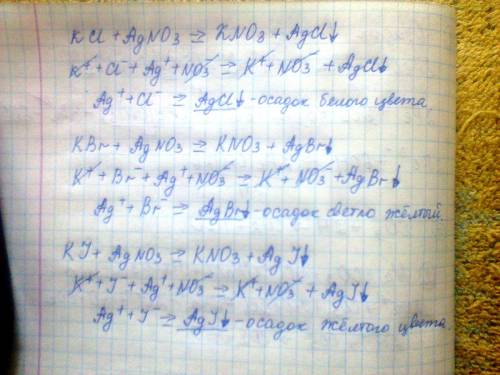 KCl + AgNO₃ ⇄ KNO₃ + AgCl↓
K⁺ + Cl⁻ + Ag⁺ + NO₃⁻ ⇄ K⁺ + NO₃⁻ + AgCl↓
Ag⁺ + Cl⁻ ⇄ AgCl↓ - осадок белого цвета.
KBr + AgNO₃ ⇄ KNO₃ + AgBr↓
K⁺ + Br⁻ + Ag⁺ + NO₃⁻ ⇄ K⁺ + NO₃⁻ + AgBr↓
Ag⁺ + Br⁻ ⇄ AgBr↓ - осадок светло жёлтый.
KI + AgNO₃ ⇄ KNO₃ + AgI↓
K⁺ + I⁻ + Ag⁺ + NO₃⁻ ⇄ K⁺ + NO₃⁻ + AgI↓
Ag⁺ + I⁻ ⇄ AgI↓ - осадок жёлтого цвета.